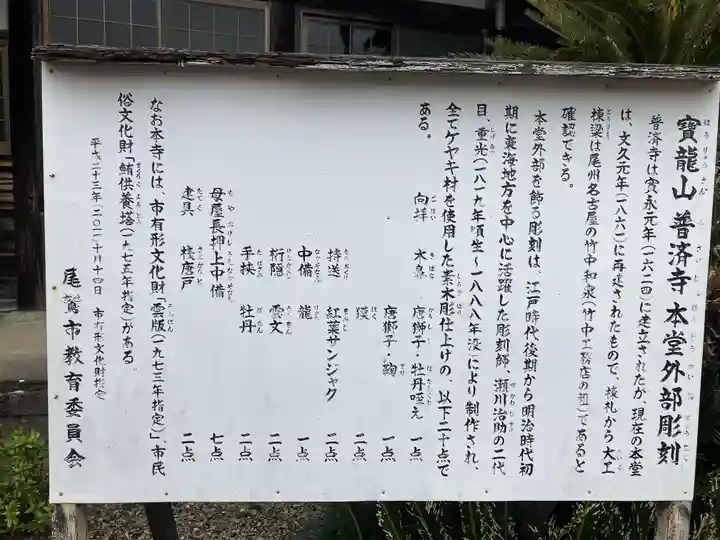 寶龍山 普済寺 本堂外部彫刻
普済寺は寛永元年(一六二四)に建立されたが、現在の本堂
は、文久元年(一八六一)に再建されたもので、棟札から大工
棟梁は尾州名古屋の竹中和泉(竹中工務店の祖)であると
確認できる。
本堂外部を飾る彫刻は、江戸時代後期から明治時代初
期に東海地方を中心に活躍した彫刻師、瀬川治助の二代
目、重光(一八一九年頃生~一八八八年没)により制作され、
全てケヤキ材を使用した素木彫仕上げの、以下二十点で
ある。
向拝 木鼻 唐獅子・牡丹咥え 一点
唐獅子・鞠 一点
獏 二点
持送 紅葉サンジャク 二点
中備 龍 一点
桁隠 雲文 二点
手挟 牡丹 二点
母屋長押上中備 七点
建具 桟唐戸 二点
なお本寺には、市有形文化財「雲版(一九七三年指定)」、市民
俗文化財「鮪供養塔(一九七五年指定)」がある。
平成二十三年(二〇一一)一月十四日 市有形文化財指定
尾鷲市教育委員会